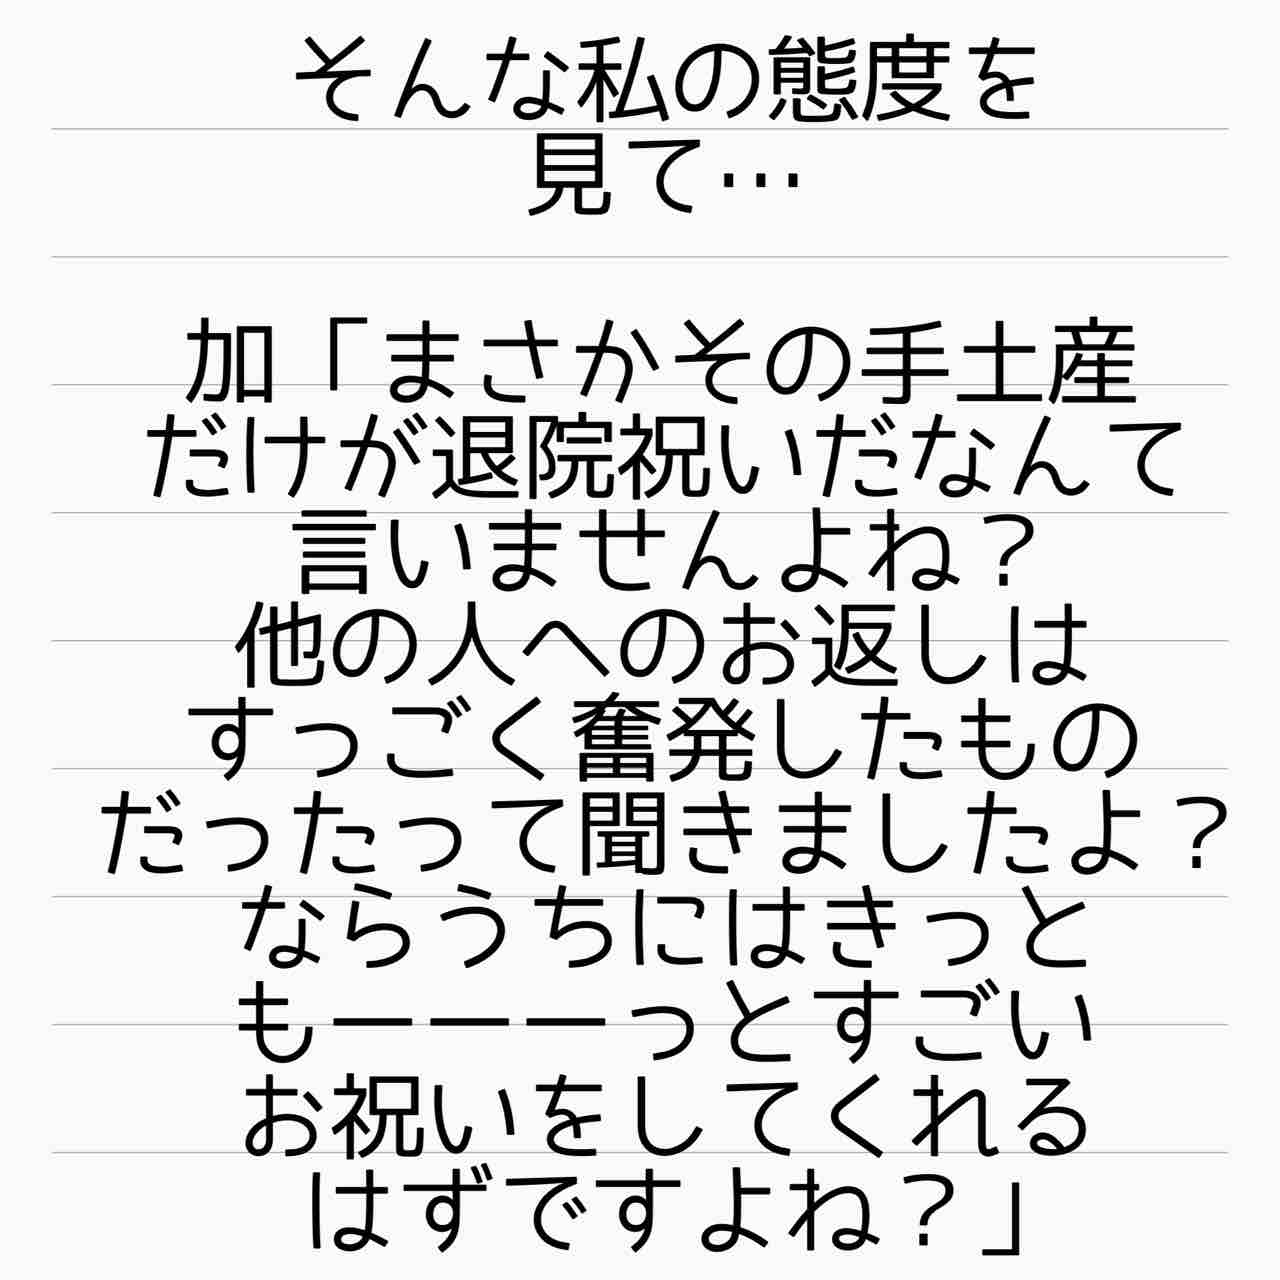 そんな私の態度を
見て…
加「まさかその手土産
だけが退院祝いだなんて
言いませんよね？
他の人へのお返しは
すっごく奮発したもの
だったって聞きましたよ？
ならうちにはきっと
もーーーっとすごい
お祝いをしてくれる
はずですよね？」